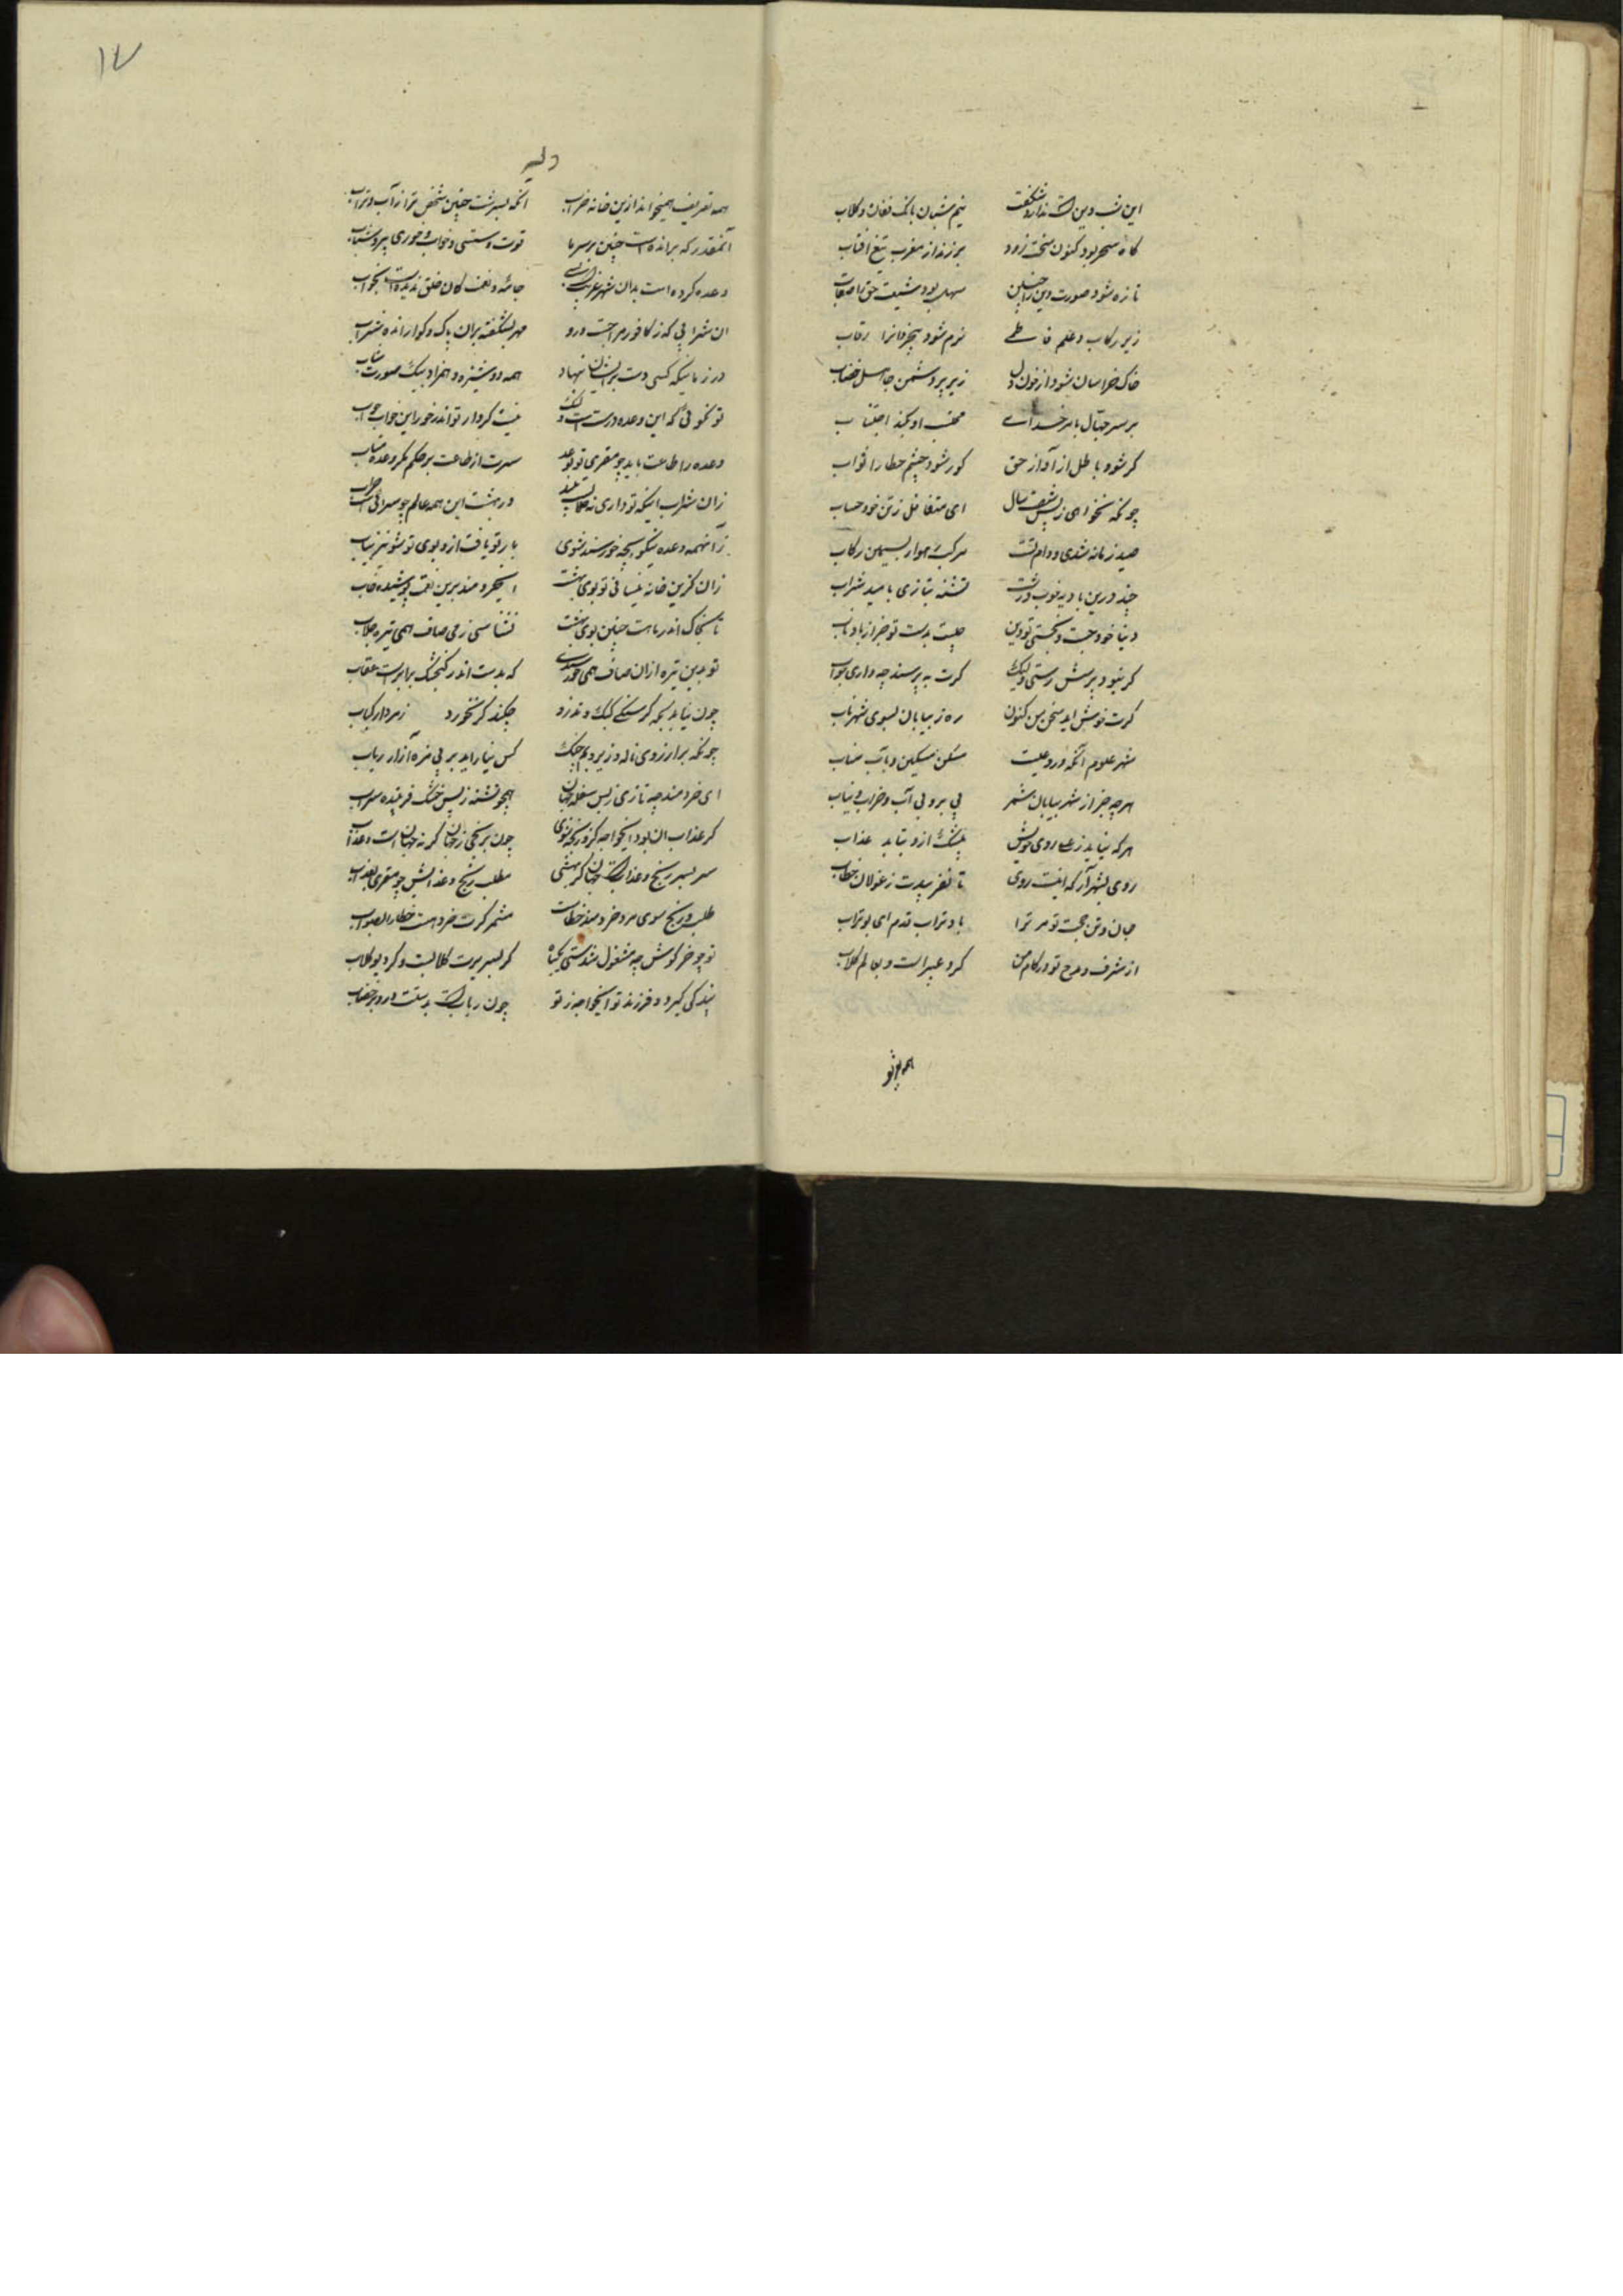 این شب دین است ندارد شکفت نیم شبان بانک فغان و کلاب
کاه سحر بود کنون سخت زود برزند از مغرب تیغ آفتاب
تازه شود صورت دین را جبین سهل بود شیعت حق را صعاب
زیر رکاب و علم فاطمی نرم شود بیخردانرا رقاب
خاک خراسان شود از خون دل زیر بر دشمن جاهل خضاب
بر سر جهال بامر خدای محتسب او بکند احتساب
کر شود باطل از آواز حق کور شود چشم خطا را ثواب
چونکه نخواهی ز پس شصت سال ای متغافل ز تن خود حساب
صید زمانه شدی و دام تست مرکب هموار بسیمین رکاب
چند درین بادیه خوب و زشت تشنه بتازی بامید شراب
دنیا خود جست و نجستی تو دین چیست بدست تو جز از باد ناب
کر نبود پرسش رستی ولیک کرت به پرسند چه داری جواب
کرت خوش اید سخن من کنون ره ز بیابان بسوی شهر تاب
شهر علوم آنکه در او علیست مسکن مسکین و مآب مثاب
هر چه جز از شهر بیابان شمر بی بر و بی آب و خراب و یباب
هر که نیابد ز علی روی خویش بیشک ازو بتابد عذاب
روی بشهر آر که اینست روی تا نفریبدت ز غولان خطاب
جان و تن حجت تو مر ترا باد تراب قدم ای بوتراب
از شرف و مدح تو در کام من کرد عبیر است و لعابم کلاب
همه بر تو
۱۷
وله
همه تعریف همیخواند ازین خانه خراب آنکه بسرشت چنین شخص ترا از آب و تراب
آنقدر که براندست چنین بر سر ما قوت و مستی و خواب و خور و پیری و شباب
وعده کرده است بدان شهر غریب جامه و نعمت کان خلق ندیدست بخواب
ان شرابی که ز کافور مزاجست درو مهر بشکفته بران پاک و کوارنده شراب
در زمانیکه کسی دست بر ایشان ننهاد همه دوشیزه و همزاد بیک صورت شاب
تو نکوئی که این وعده درست است ولیک نیست کردار تو اندر خور این خواب جواب
وعده را طاعت باید چو مقری تو بوعد سرت از طاعت بر حکم نکر وعده متاب
زان شراب اینکه تو داری نه خلابیست پلید در بهشت این همه عالم چو سرائیست خراب
زانهمه وعده نیکو بچه خورسند شوی یار تو یافت ازو بوی تو شو نیز بیاب
زان کزین خانه نیابی تو بوی بهشت ایخردمند برین نعمت پوشیده نقاب
تا بخاک اندر ناهست چنین بوی بهشت نشناسی ز می صاف همی تیره خلاب
تو بدین تیره ازان صاف همی خورسندی که بدست اندر کنجشک برابرست عقاب
چون نیابد بکه کرسنکی کبک و تذرو چکند کر نخورد زمردار کباب
چونکه بر آرزوی ناله و زیر و بم چنک کس نیارامد بر بی مزه آزار رباب
ای خردمند چه تازی ز پس سفله جهان همچو تشنه ز پس خشک فریبنده سراب
کر عذاب ان بود ایخواجه کزو رنجه شوی چون برنجی ز جهان کر نه جهانست عذاب
سر بسر رنج و عذابست جهان کر بهشی مطلب رنج و عذابش چو مقری بعذاب
طلب رنج سوی مرد خردمند خطاست مشمر کرت خرد هست خطا را بصواب
تو چو خرکوش چه مشغول شدستی بکیاه کر بسر برت کلابست و کرد تو کلاب
بندکی کیرد فرزند تو ایخواجه ز تو چون ربابست بدستت در و بر خضاب